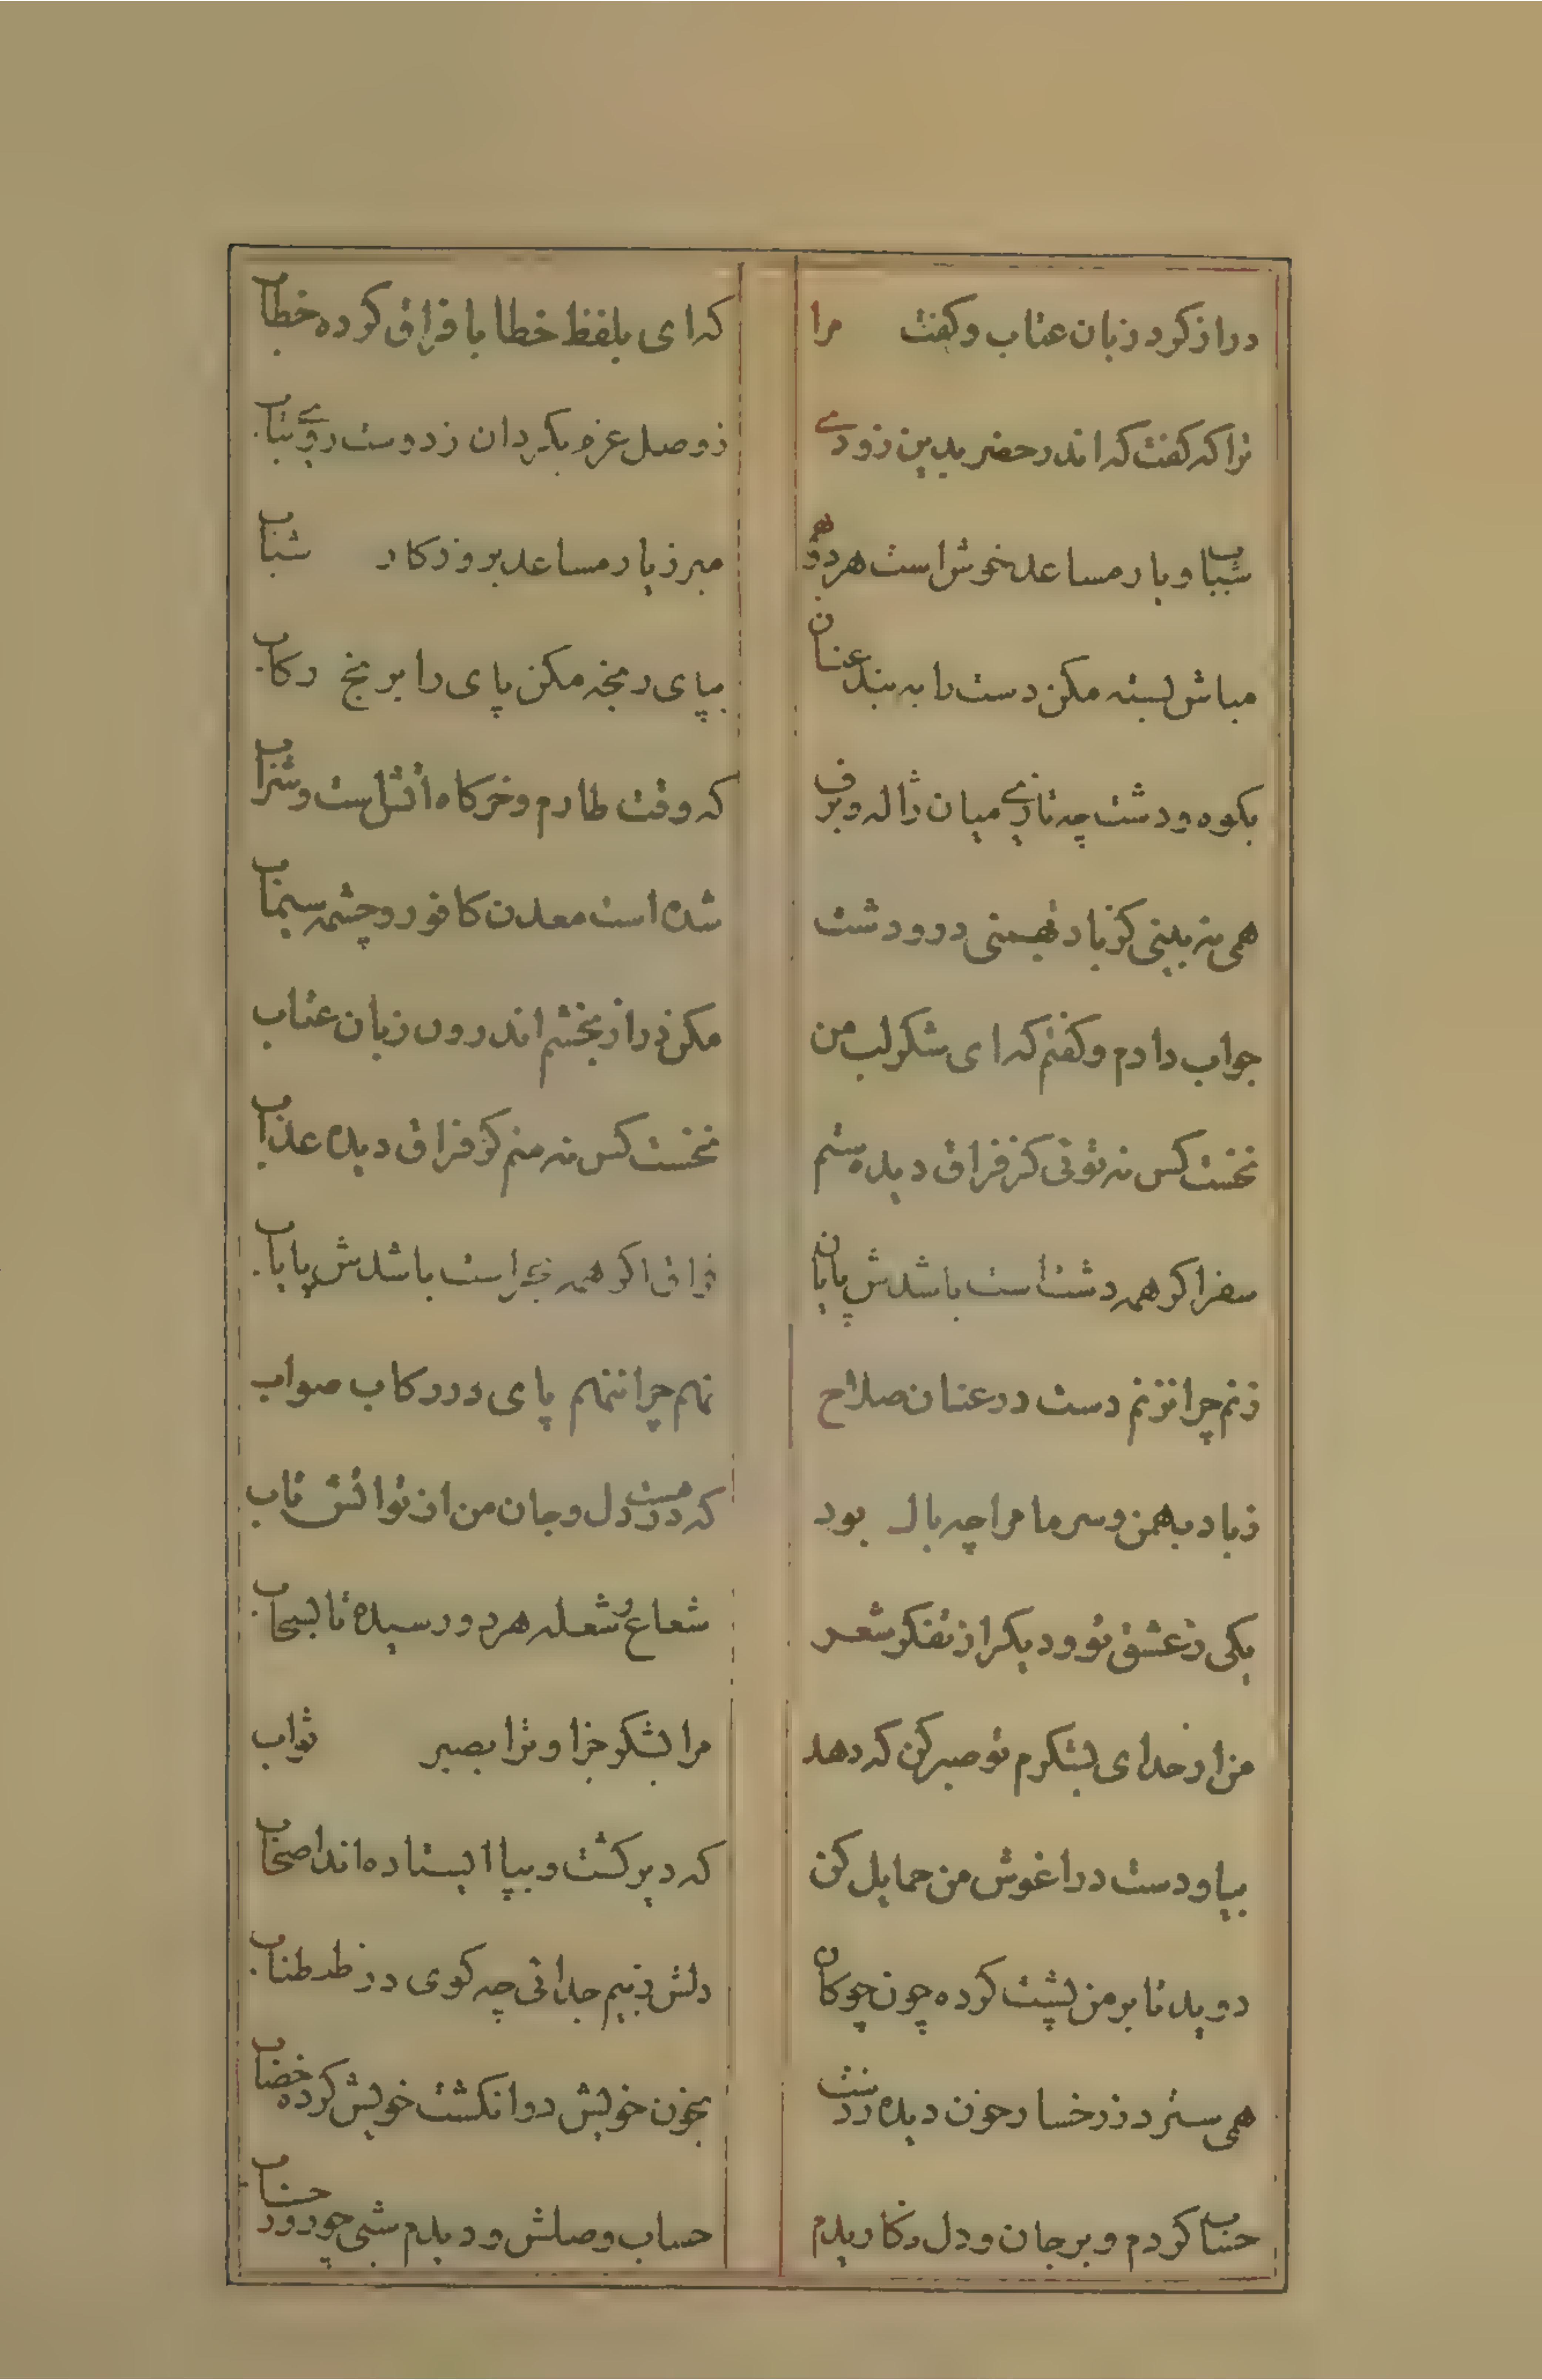 دراز کرد زبان عتاب و کفت مرا
که ای بلفظ خطا با فراق کرده خطاب
ترا که کفت که اندر حضر بدین زودی
ز وصل عزم بکردان ز دوست روی بتاب
شباب و یار مساعد خوش است هر دو بهم
مبر ز یار مساعد بروزکار شباب
مباش بسته مکن دست را به بند عنان
بپای رنجه مکن پای را برنج رکاب
بکوه و دشت چه تازی میان ژاله و برف
که وقت طارم و خرکاه اتش است و شراب
همی نه بینی کز باد بهمنی در و دشت
شده است معدن کافور و چشمه سیماب
جواب دادم و کفتم که ای شکر لب من
مکن دراز بخشم اندرون زبان عتاب
نخست کس نه توئی کز فراق دیده ستم
نخست کس نه منم کز فراق دیده عذاب
سفر اکر همه دشت است باشدش پایان
فراق اکر همه بحر است باشدش پایاب
زنم چرا نزنم دست در عنان صلاح
نهم چرا ننهم پای در رکاب صواب
ز باد بهمن و سرما مرا چه بال بود
که هست در دل و جان من از تو اتش تاب
یکی ز عشق تو و دیکر از تفکر شعر
شعاع و شعله هر دو رسیده تا بسحاب
من از خدای بشکرم تو صبر کن که دهد
مرا بشکر جزا و ترا بصبر ثواب
بیا و دست در اغوش من حمایل کن
که دیر کشت و بپا ایستاده اند اصحاب
دوید تا بر من پشت کرده چون چوکان
دلش ز بیم جدائی چه کوی در طبطاب
همی سترد ز رخسار خون دیده بدست
بخون خویش دو انکشت خویش کرده خضاب
حساب کردم و بر جان و دل نکاریدم
حساب وصلش و دیدم شبی چو روز حساب